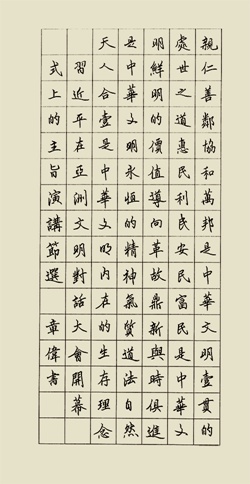 親仁善鄰協和萬邦是中華文明壹貫的
處世之道惠民利民安民富民是中華文
明鮮明的價值導向革故鼎新與時俱進
是中華文明永恒的精神氣質道法自然
天人合壹是中華文明內在的生存理念
習近平在亞洲文明對話大會開幕
式上的主旨演講節選 章偉書